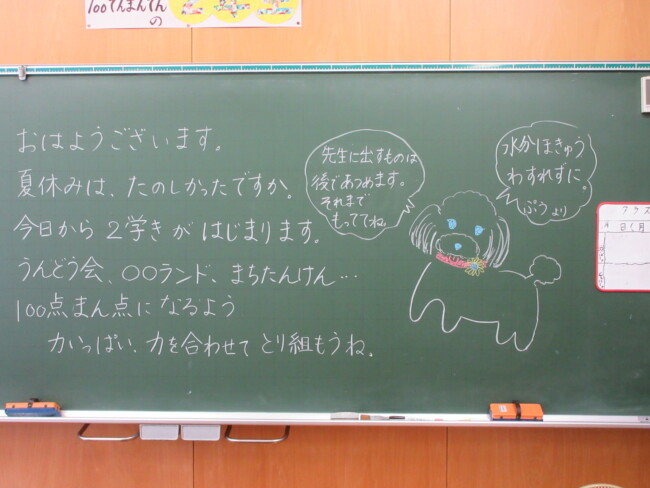 100てんまんてん
の
おはようございます。
夏休みは、たのしかったですか。
今日から 2学きが はじまります。
うんどう会、〇〇ランド、まちたんけん…
100点まん点に なるよう
力いっぱい、力を合わせて とり組もうね。
先生に出すものは
後であつめます。
それまで
もっててね。
水分ほきゅう
わすれずに。
ぷうより
クラス
月
日(月